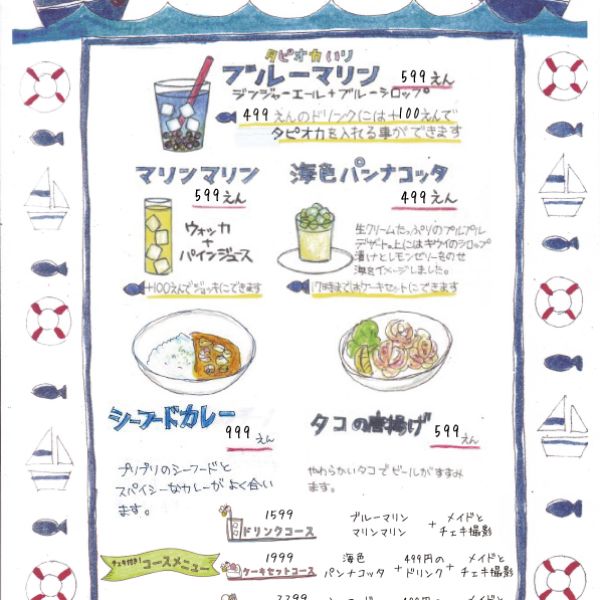 タピオカいり
ブルーマリン 599えん
ジンジャーエール+ブルーシロップ
499えんのドリンクには+100えんで
タピオカを入れる事ができます
マリンマリン
599えん
ウォッカ
+
パインジュース
+100えんでジョッキにできます
海色パンナコッタ
499えん
生クリームたっぷりのプルプル
デザート。上にはキウイのシロップ
漬けとレモンゼリーをのせ
海をイメージしました。
17時まではケーキセットにできます
シーフードカレー
999えん
プリプリのシーフードと
スパイシーなカレーがよく合い
ます。
タコの唐揚げ 599えん
やわらかいタコでビールがすすみ
ます。
1599
ドリンクコース
ブルーマリン
マリンマリン
+
メイドと
チェキ撮影
チェキ付き!
コースメニュー
1999
ケーキセットコース
海色
パンナコッタ
+
499円の
ドリンク
+
メイドと
チェキ撮影